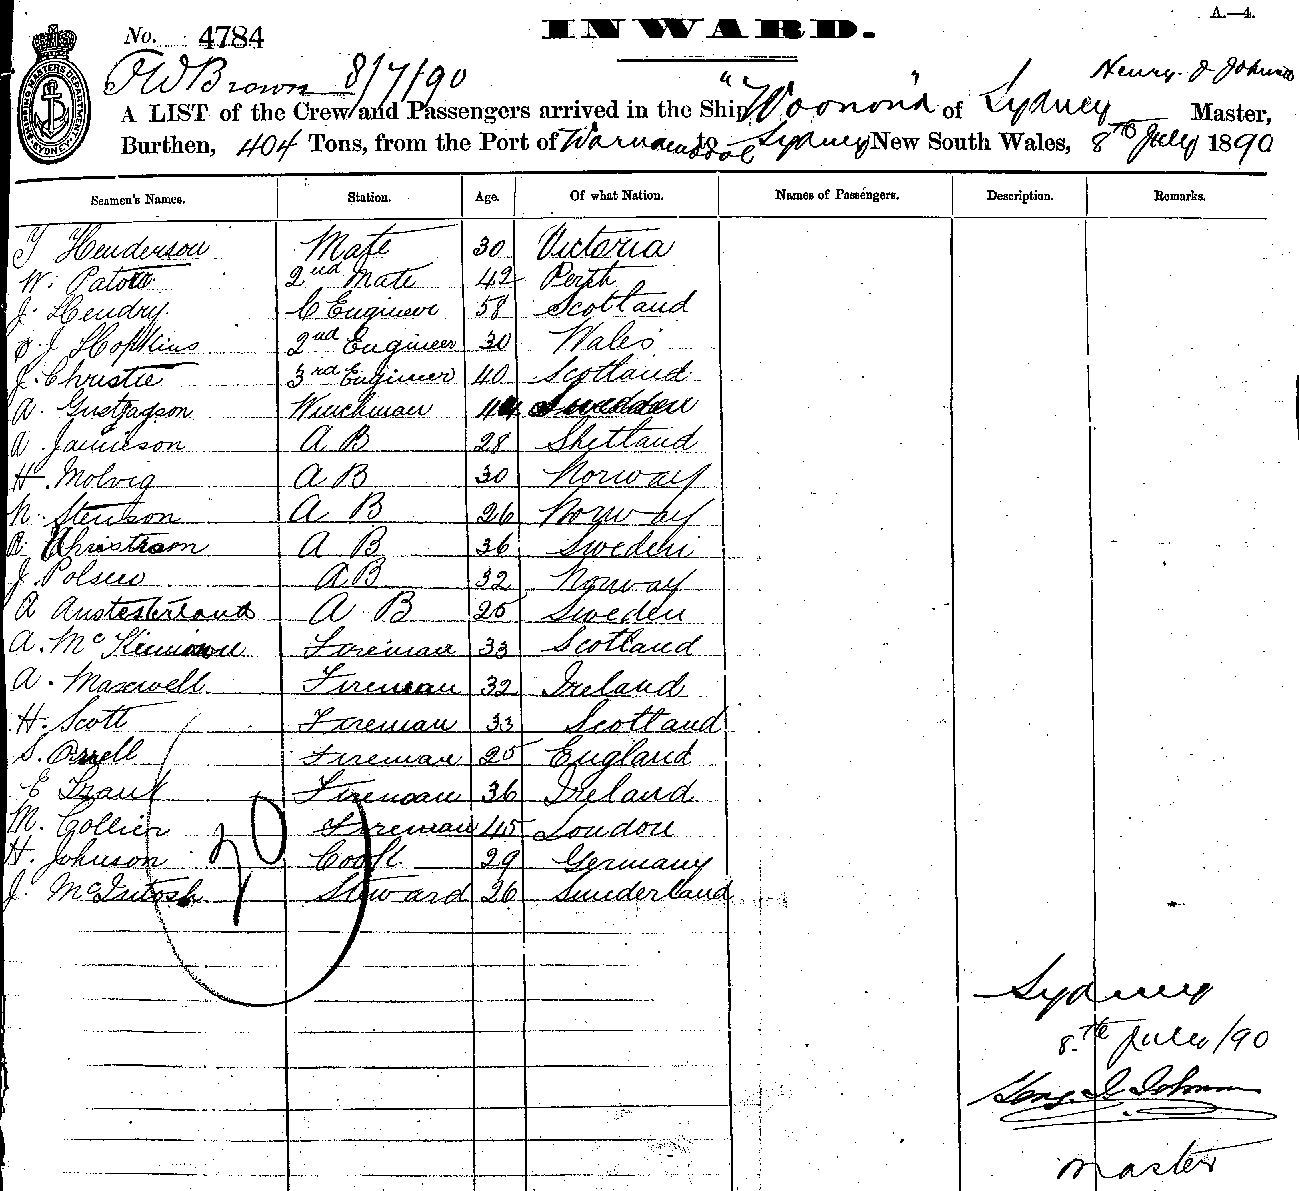 A.—4.
No. 4784 INWARD.
SHIPPING MASTERS DEPARTMENT SYDNEY
TWBrown 8/7/90 Henry J Johns
A LIST of the Crew and Passengers arrived in the Ship "Woonona" of Sydney Master,
Burthen, 404 Tons, from the Port of Warrnambool to Sydney New South Wales, 8th July 1890
Seamen's Names. Station. Age. Of what Nation. Names of Passengers. Description. Remarks.
T Henderson Mate 30 Victoria
W. 2nd Mate 42 Perth
J. Hendry C Engineer 58 Scotland
J Hopkins 2nd Engineer 30 Wales
J. Christie 3rd Engineer 40 Scotland
A. Gustafson Winchman 44 Sweden
A. Jamieson A B 28 Shetland
H. Molvig A B 30 Norway
N. Stenson A B 26 Norway
A B 36 Sweden
J. Polsen A B 32 Norway
A B 25 Sweden
A. McKinnon Fireman 33 Scotland
A. Maxwell Fireman 32 Ireland
H. Scott Fireman 33 Scotland
S. Orrell Fireman 25 England
E Frank Fireman 36 Ireland
M. Collier Fireman 45 London
H. Johnson Cook 29 Germany
J. McIntosh Steward 26 Sunderland
20
Sydney
8.th July /90
Henry J Johnson
Master